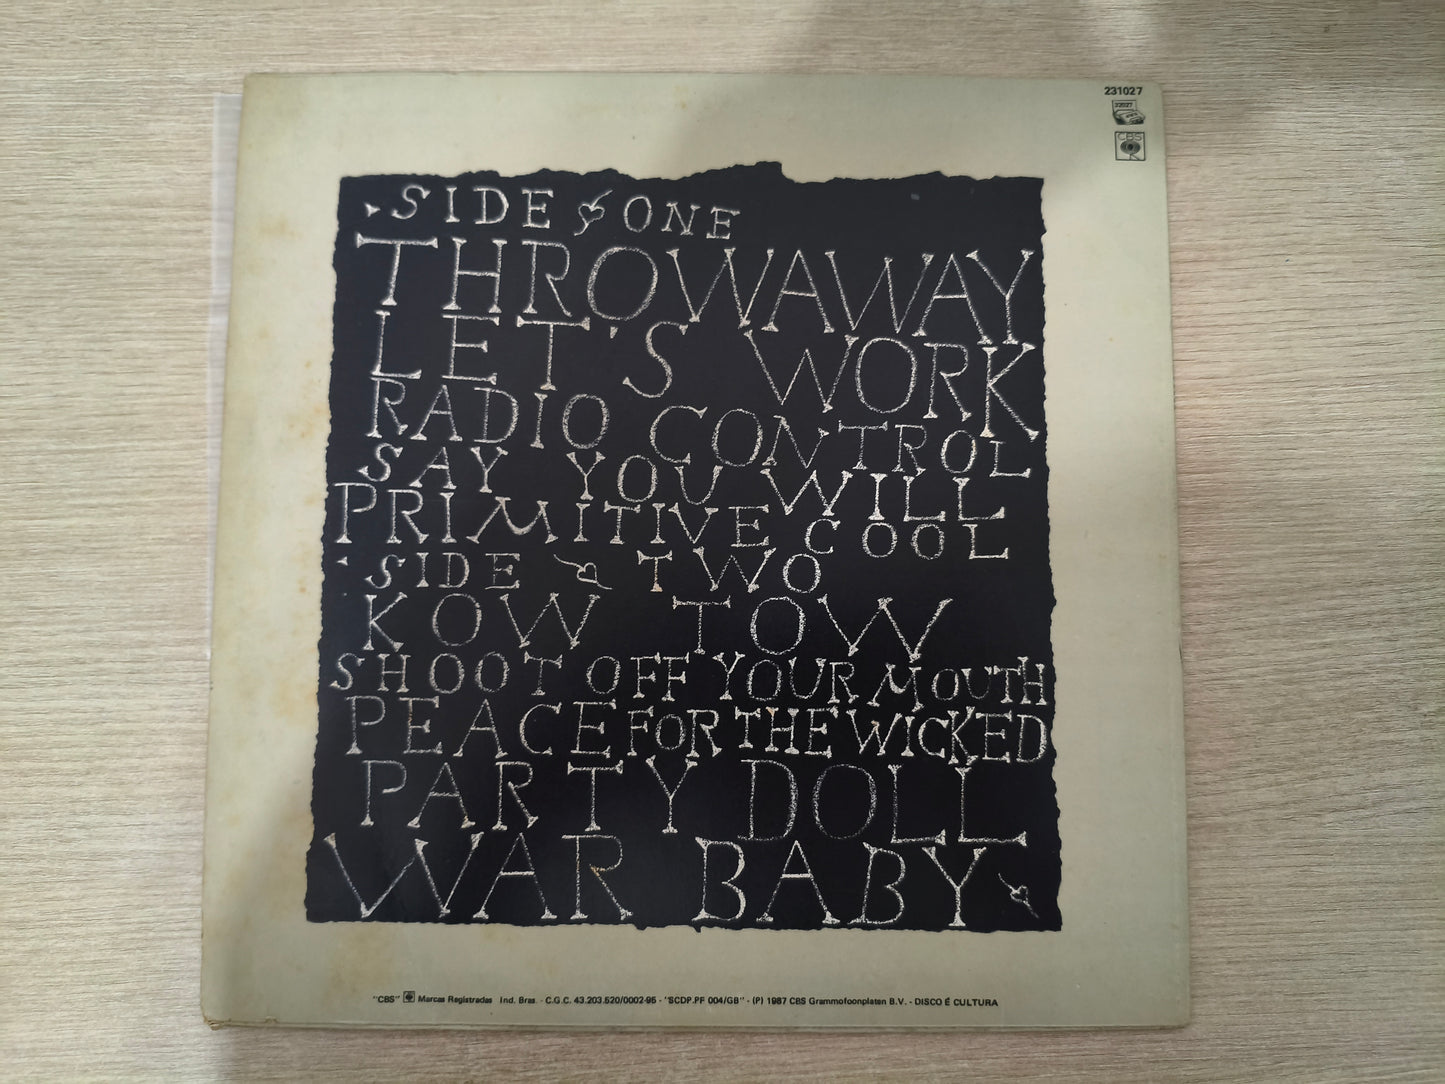 231027
22027
CBS
SIDE ONE
THROWAWAY
LET'S WORK
RADIO CONTROL
SAY YOU WILL
PRIMITIVE COOL
SIDE TWO
KOW TOW
SHOOT OFF YOUR MOUTH
PEACE FOR THE WICKED
PARTY DOLL
WAR BABY
"CBS" Marcas Registradas Ind. Bras. - C.G.C. 43.203.520/0002-95 - "SCDP.PF 004/GB" - (P) 1987 CBS Grammofoonplaten B.V. - DISCO É CULTURA